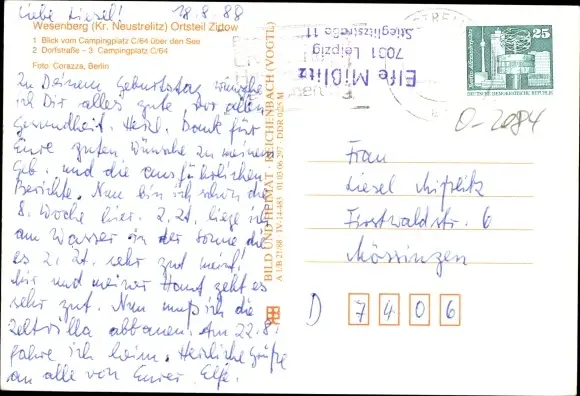 Liebe Liesel! 18.8.88
Wesenberg (Kr. Neustrelitz) Ortsteil Zirtow
1 Blick vom Campingplatz C/64 über den See
2 Dorfstraße – 3 Campingplatz C/64
Foto: Corazza, Berlin
Zu Deinem Geburtstag wünsche
ich Dir alles gute vor allem
Gesundheit. Herzl. Dank für
Eure guten Wünsche zu meinem
Geb. und die ausführlichen
Berichte. Nun bin ich schon die
8. Woche hier. Z. Zt. liege ich
am Wasser in der Sonne die
es z. Zt. sehr gut meint!
Mir und meiner Haut geht es
sehr gut. Nun muß ich die
Zeltvilla abbauen. Am 22.8.
fahre ich heim. Herzliche Grüße
an alle von Eurer Elfe.
BILD UND HEIMAT REICHENBACH (VOGTL)
A 1/B 21/88 IV-14-483 01 03 06 297 DDR 0,25 M
Elfe Mißlitz
7031 Leipzig
Stieglitzstraße 11
25
DEUTSCHE DEMOKRATISCHE REPUBLIK
0-2084
Frau
Liesel Mißlitz
Firstwaldstr. 6
Mössingen
D 7406